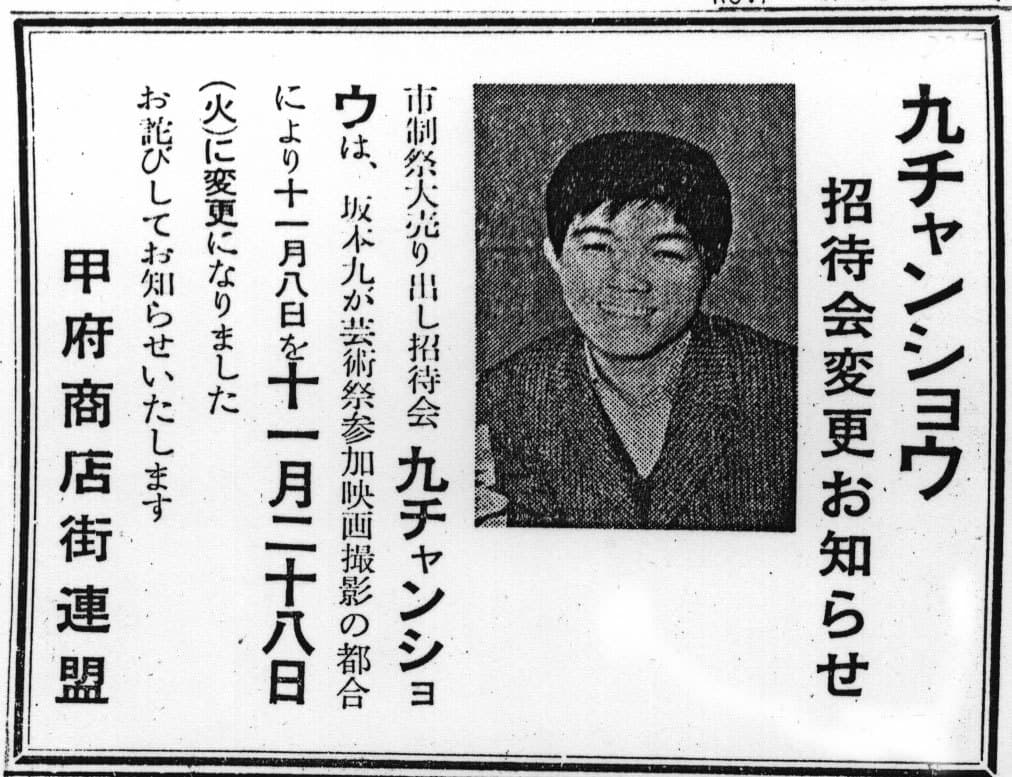 九チャンショウ
招待会変更お知らせ
市制祭大売り出し招待会 九チャンショ
ウは、坂本九が芸術祭参加映画撮影の都合
により十一月八日を十一月二十八日
(火)に変更になりました
お詫びしてお知らせいたします
甲府商店街連盟